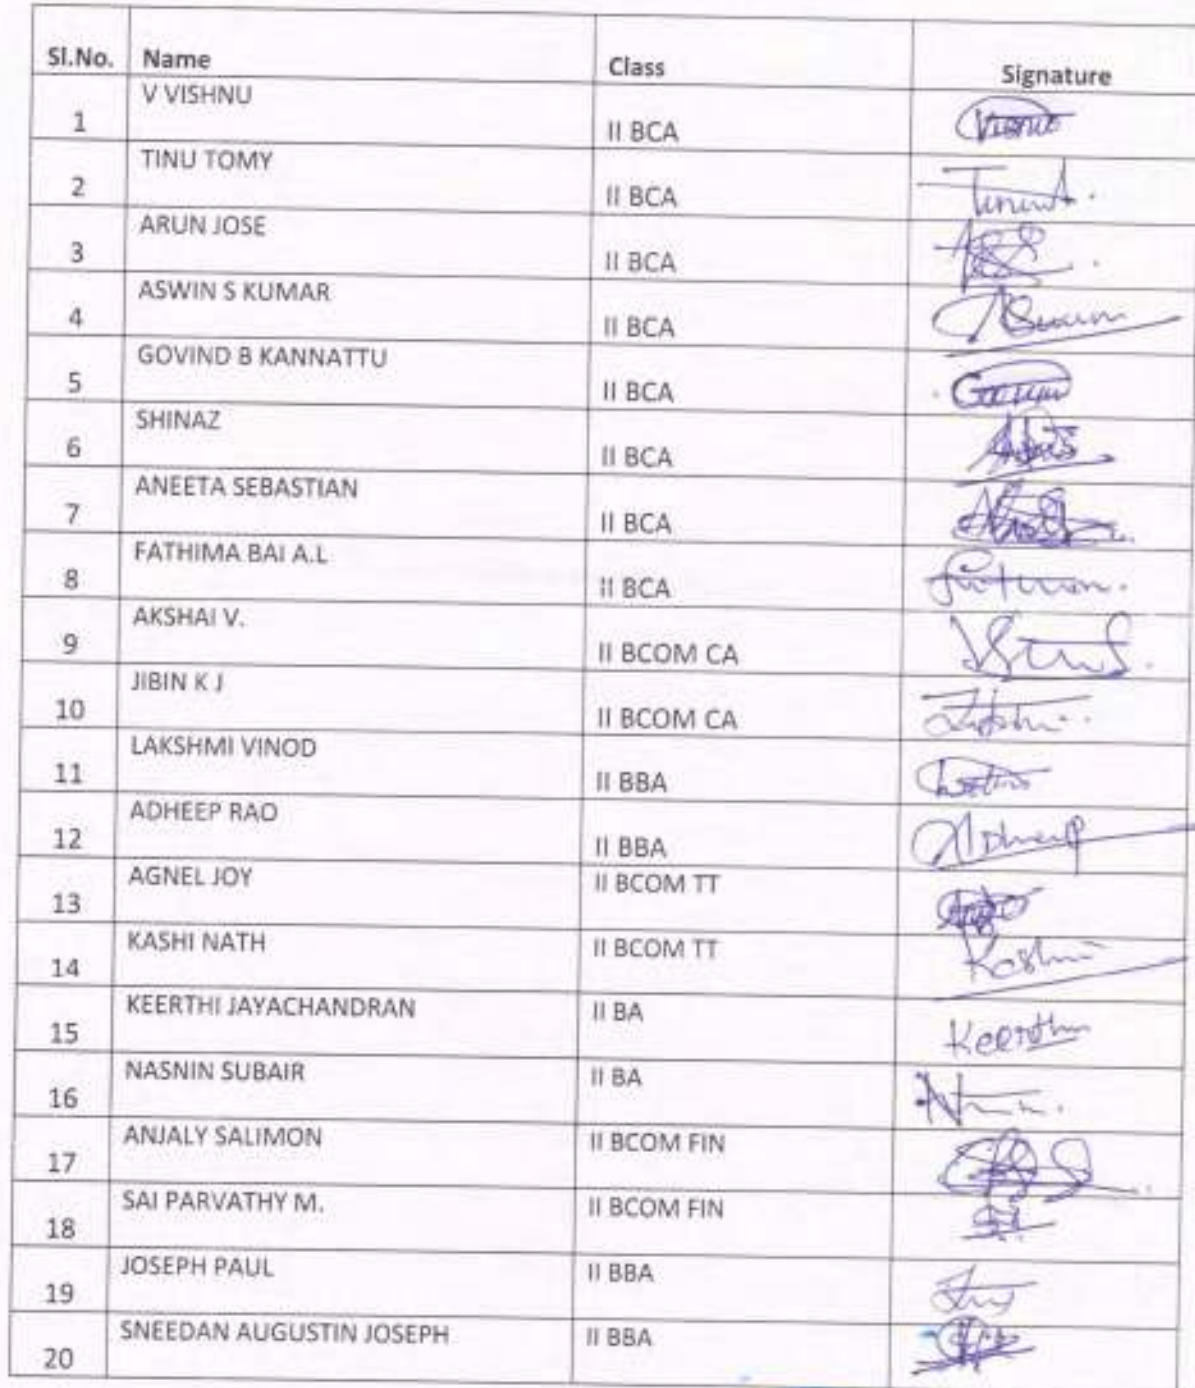 Sl.No. Name Class Signature
1 V VISHNU II BCA
2 TINU TOMY II BCA
3 ARUN JOSE II BCA
4 ASWIN S KUMAR II BCA
5 GOVIND B KANNATTU II BCA
6 SHINAZ II BCA
7 ANEETA SEBASTIAN II BCA
8 FATHIMA BAI A.L II BCA
9 AKSHAI V. II BCOM CA
10 JIBIN K J II BCOM CA
11 LAKSHMI VINOD II BBA
12 ADHEEP RAO II BBA
13 AGNEL JOY II BCOM TT
14 KASHI NATH II BCOM TT Kashi
15 KEERTHI JAYACHANDRAN II BA Keerthi
16 NASNIN SUBAIR II BA
17 ANJALY SALIMON II BCOM FIN
18 SAI PARVATHY M. II BCOM FIN
19 JOSEPH PAUL II BBA
20 SNEEDAN AUGUSTIN JOSEPH II BBA